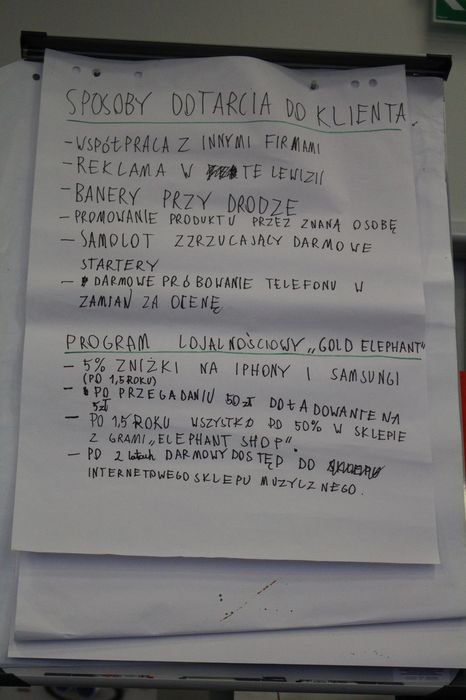 SPOSOBY DOTARCIA DO KLIENTA.
- WSPÓŁPRACA Z INNYMI FIRMAMI
- REKLAMA W TELEWIZII
- BANERY PRZY DRODZE
- PROMOWANIE PRODUKTU PRZEZ ZNANĄ OSOBĘ
- SAMOLOT ZZRZUCAJĄCY DARMOWE
STARTERY
- DARMOWE PRÓBOWANIE TELEFONU W
ZAMIAN ZA OCENĘ.
PROGRAM LOJALNOŚCIOWY „GOLD ELEPHANT"
- 5% ZNIŻKI NA IPHONY I SAMSUNGI
(PO 1,5 ROKU)
- PO PRZEGADANIU 50 zł DOŁADOWANIE NA
5 zł
- PO 1,5 ROKU WSZYSTKO DO 50% W SKLEPIE
Z GRAMI „ELEPHANT SHOP".
- PO 2 latach DARMOWY DOSTĘP DO
INTERNETOWEGO SKLEPU MUZYCZNEGO.